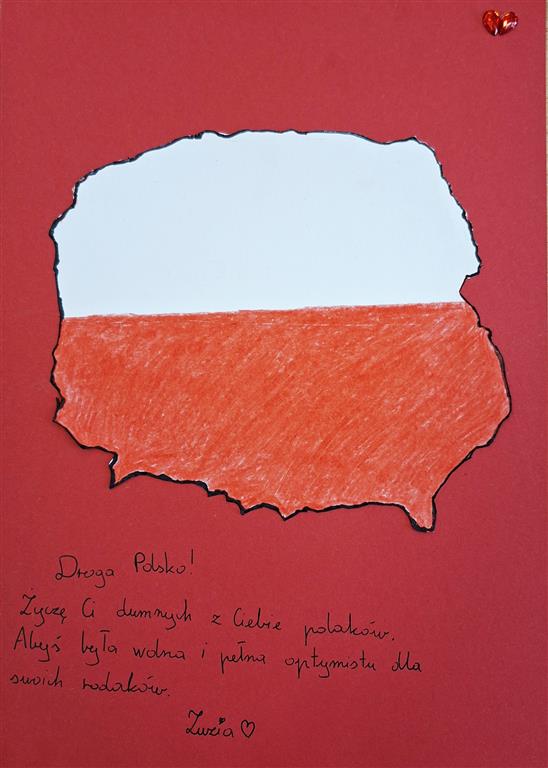 Droga Polsko!
Życzę Ci dumnych z Ciebie polaków.
Abyś była wolna i pełna optymistu dla
swoich rodaków.
Zuzia ♡